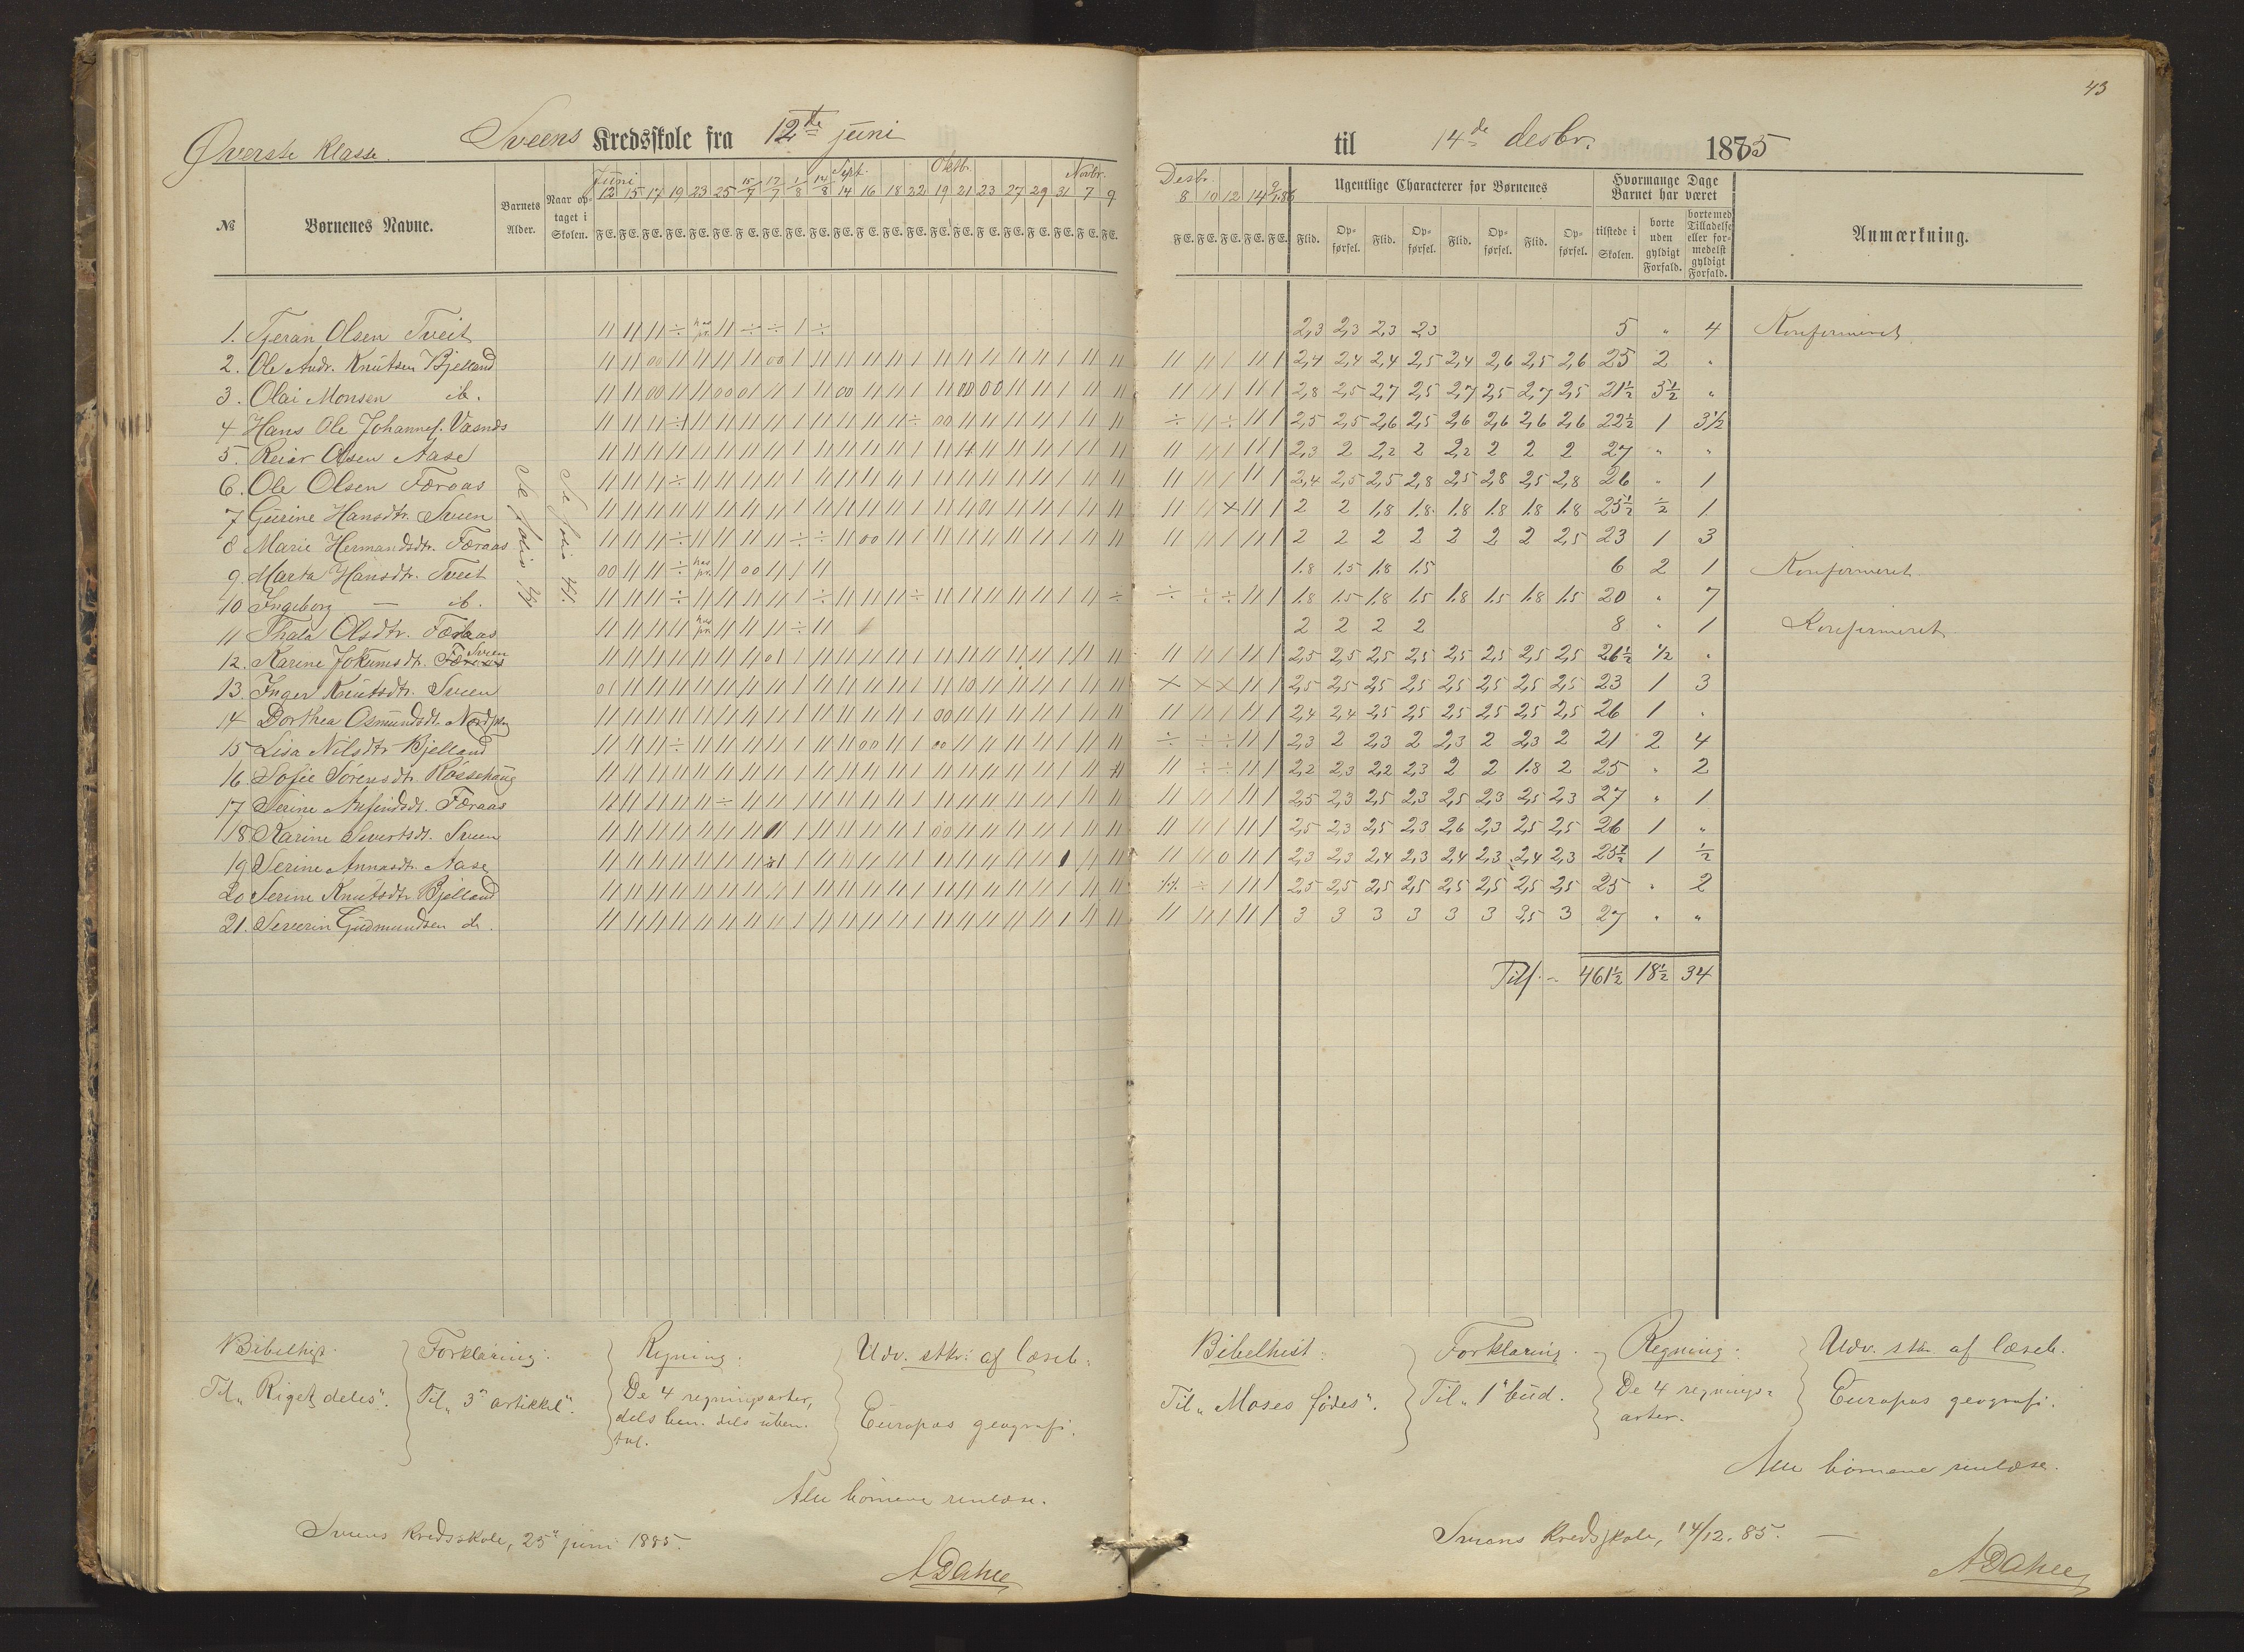 43
Øverste Klasse. Sveens Kredsskole fra 12te juni til 14de desbr. 1885
Juni Sept. Oktb. Novbr. Desbr.
12 15 17 19 23 25 15/7 17/7 1/8 14/8 14 16 18 22 19 21 23 27 29 31 7 9 8 10 12 14
№ Børnenes Navne. Barnets Alder. Naar optaget i Skolen. F E. F E. F E. F E. F E. F E. F E. F E. F E. F E. F E. F E. F E. F E. F E. F E. F E. F E. F E. F E. F E. F E.
F E. F E. F E. F E. F E. Ugentlige Characterer for Børnenes Flid. Opførsel. Flid. Opførsel. Flid. Opførsel. Flid. Opførsel.
Hvormange Dage Barnet har været tilstede i Skolen. borte uden gyldigt Forfald. borte med Tilladelse eller formedelst gyldigt Forfald. Anmærkning.
1. Tjeran Olsen Tveit 2,3 2,3 2,3 2,3 5 " 4 Konfirmeret.
2. Ole Andr. Knutsen Bjelland 2,4 2,4 2,4 2,5 2,4 2,6 2,5 2,6 25 2 "
3. Olai Monsen ib. 2,8 2,5 2,7 2,5 2,7 2,5 2,7 2,5 21½ 5½ "
4 Hans Ole Johannes. 2,5 2,5 2,6 2,5 2,6 2,6 2,6 2,6 22½ 1 3½
5. Reiar Olsen Aase 2,3 2 2,2 2 2,2 2 2 2 27 " "
6. Ole Olsen Færaas 2,4 2,5 2,5 2,8 2,5 2,8 2,5 2,8 26 " 1
7 Gurine Hansdtr. Sveen 2 2 1.8 1.8 1.8 1.8 1.8 1.8 25½ ½ 1
8 Marie Hermandsdtr. Færaas 2 2 2 2 2 2 2 2,5 23 1 3
9. Marta Hansdtr. Tveit 1.8 1.5 1.8 1.5 6 2 1 Konfirmeret.
10 Ingeborg — ib. 1.8 1.5 1.8 1.5 1.8 1.5 1.8 1.5 20 " 7
11 Thala Olsdtr. Færaas 2 2 2 2 8 " 1 Konfirmeret
12. Karine Jokumsdtr. Færaas Sveen 2,5 2,5 2,5 2,5 2,5 2,5 2,5 2,5 26½ ½ "
13. Inger Knutsdtr. Sveen 2,5 2,5 2,5 2,5 2,5 2,5 2,5 2,5 23 1 3
14 Dorthea Osmundsdt. 2,4 2,4 2,5 2,5 2,5 2,5 2,5 2,5 26 1 "
15 Lisa Nilsdtr Bjelland 2,3 2 2,3 2 2,3 2 2,3 2 21 2 4
16. Sofie Sørensdtr. Røssehaug 2,2 2,3 2,2 2,3 2 2 1.8 2 25 " 2
17 Serine Arfindsdt. Færaas 2,5 2,3 2,5 2,3 2,5 2,3 2,5 2,3 27 " 1
18 Karine Sivertsdt. Sveen 2,5 2,3 2,5 2,3 2,6 2,3 2,5 2,5 26 1 "
19 Serine Annasdtr. Aase 2,3 2,3 2,4 2,3 2,4 2,3 2,4 2,3 25½ 1 ½
20 Serine Knutsdtr Bjelland 2,5 2,5 2,5 2,5 2,5 2,5 2,5 2,5 25 " 2
21. Severin Gudmundsen ib. 3 3 3 3 3 3 3,5 3 27 " "
Tils. - 461½ 18½ 34
Bibelhist. Forklaring. Regning. Udv. stkr. af læseb.
Til „Riget deles". Til „3die artikkel". De 4 regningsarter,
dels ben. dels uben.
tal.
Europas geografi.
Alle børnene renlæse.
Sveens Kredsskole, 25de juni 1885.
A Dahle
Bibelhist. Forklaring. Regning. Udv. stkr. af læseb.
Til „Moses fødes". Til „1ste bud. De 4 regnings-
arter.
Europas geografi.
Alle børnene renlæse.
Sveens Kredsskole, 14/12. 85.
A Dahle